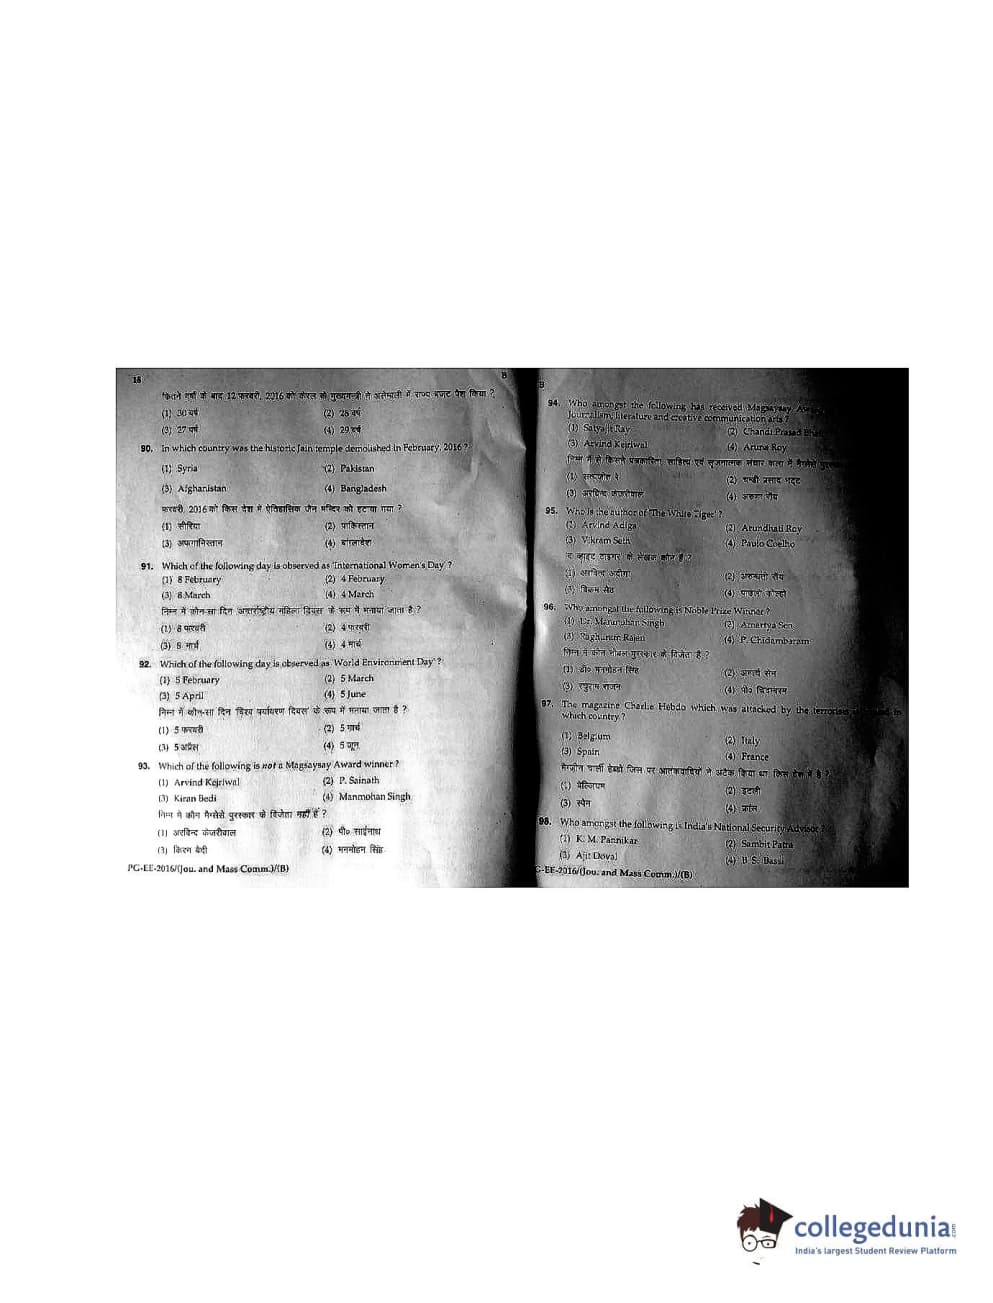 18
B
कितने वर्षों के बाद 12 फरवरी, 2016 को केरल के मुख्यमन्त्री ने असेम्बली में राज्य बजट पेश किया ?
(1) 30 वर्ष
(2) 28 वर्ष
(3) 27 वर्ष
(4) 29 वर्ष
90. In which country was the historic Jain temple demolished in February, 2016 ?
(1) Syria
(2) Pakistan
(3) Afghanistan
(4) Bangladesh
फरवरी, 2016 को किस देश में ऐतिहासिक जैन मन्दिर को हटाया गया ?
(1) सीरिया
(2) पाकिस्तान
(3) अफगानिस्तान
(4) बांग्लादेश
91. Which of the following day is observed as 'International Women's Day ?
(1) 8 February
(2) 4 February
(3) 8 March
(4) 4 March
निम्न में कौन-सा दिन अन्तर्राष्ट्रीय महिला दिवस के रूप में मनाया जाता है ?
(1) 8 फरवरी
(2) 4 फरवरी
(3) 8 मार्च
(4) 4 मार्च
92. Which of the following day is observed as 'World Environment Day' ?
(1) 5 February
(2) 5 March
(3) 5 April
(4) 5 June
निम्न में कौन-सा दिन 'विश्व पर्यावरण दिवस' के रूप में मनाया जाता है ?
(1) 5 फरवरी
(2) 5 मार्च
(3) 5 अप्रैल
(4) 5 जून
93. Which of the following is not a Magsaysay Award winner ?
(1) Arvind Kejriwal
(2) P. Sainath
(3) Kiran Bedi
(4) Manmohan Singh
निम्न में कौन मैग्सेसे पुरस्कार के विजेता नहीं हैं ?
(1) अरविन्द केजरीवाल
(2) पी० साईनाथ
(3) किरन बेदी
(4) मनमोहन सिंह
PG-EE-2016/(Jou. and Mass Comm.)/(B)
B
94. Who amongst the following has received Magsaysay
Journalism, literature and creative communication arts ?
(1) Satyajit Ray
(2) Chandi Prasad
(3) Arvind Kejriwal
(4) Aruna Roy
निम्न में से किसने पत्रकारिता, साहित्य एवं सृजनात्मक संचार कला में मैग्सेसे
(1) सत्यजीत रे
(2) चण्डी प्रसाद भट्ट
(3) अरविन्द केजरीवाल
(4) अरुणा रॉय
95. Who is the author of 'The White Tiger' ?
(1) Arvind Adiga
(2) Arundhati Roy
(3) Vikram Seth
(4) Paulo Coelho
'द व्हाइट टाइगर' के लेखक कौन हैं ?
(1) अरविन्द अदीगा
(2) अरुन्धती रॉय
(3) विक्रम सेठ
(4) पाउलो कोल्हो
96. Who amongst the following is Noble Prize Winner ?
(1) Dr. Manmohan Singh
(2) Amartya Sen
(3) Raghuram Rajen
(4) P. Chidambaram
निम्न में कौन नोबल पुरस्कार के विजेता हैं ?
(1) डॉ० मनमोहन सिंह
(2) अमर्त्य सेन
(3) रघुराम राजन
(4) पी० चिदम्बरम
97. The magazine Charlie Hebdo which was attacked by the terrorists in
which country ?
(1) Belgium
(2) Italy
(3) Spain
(4) France
मैगजीन चार्ली हेब्दो जिस पर आतंकवादियों ने अटैक किया था किस देश में है ?
(1) बेल्जियम
(2) इटली
(3) स्पेन
(4) फ्रांस
98. Who amongst the following is India's National Security Advisor ?
(1) K. M. Pannikar
(2) Sambit Patra
(3) Ajit Doval
(4) B S. Bassi
G-EE-2016/(Jou. and Mass Comm.)/(B)
collegedunia.com
India's largest Student Review Platform